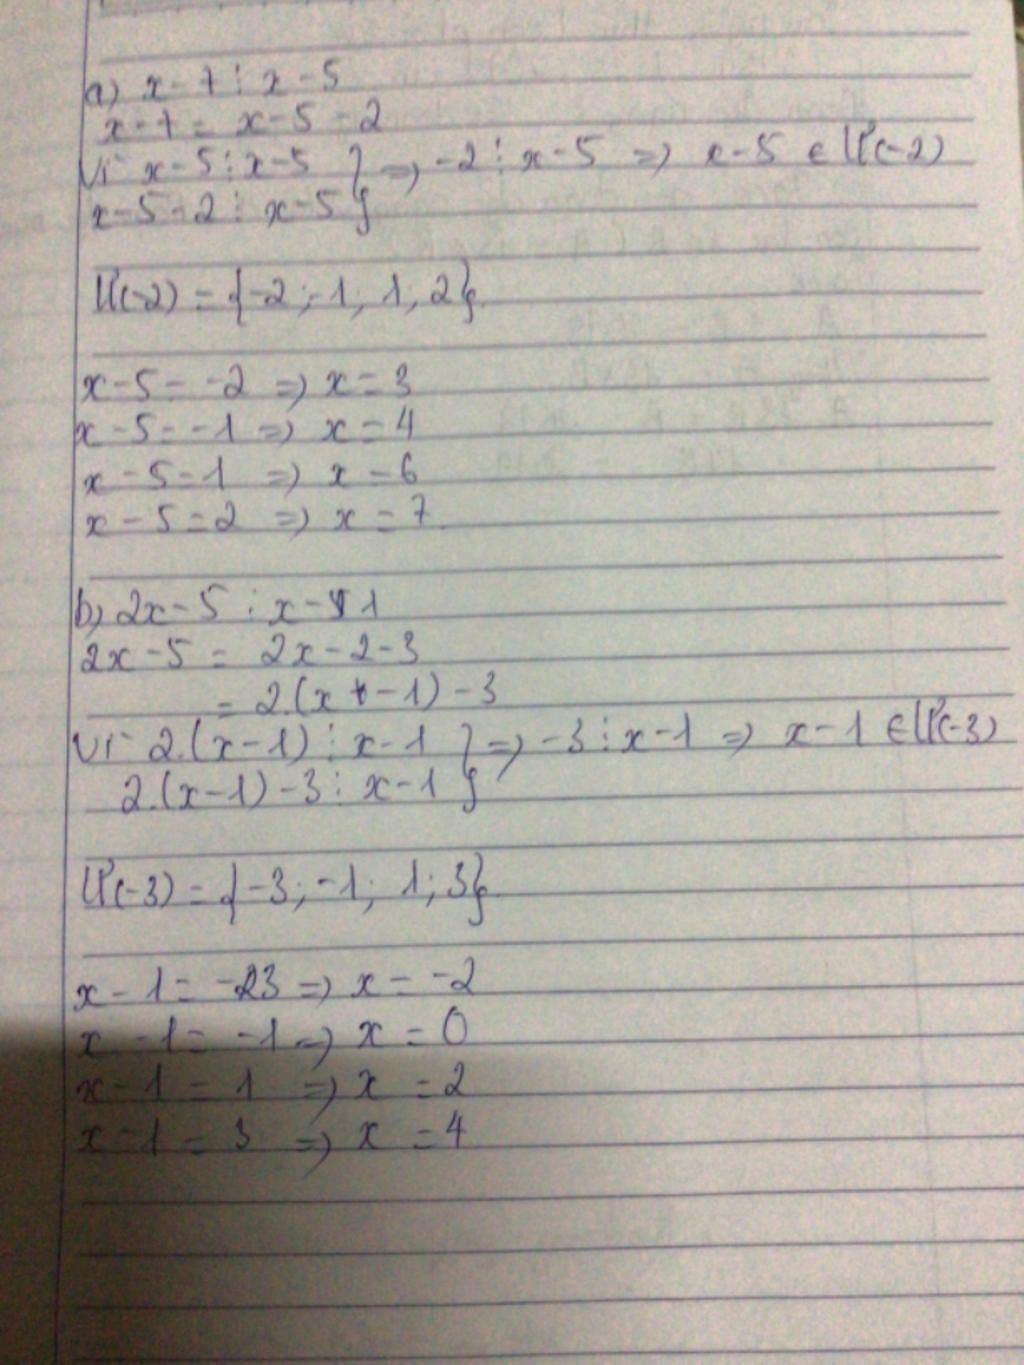 a) x-7 ⋮ x-5
x-7 = x-5-2
Vì x-5 ⋮ x-5 } => -2 ⋮ x-5 => x-5 ∈ Ư(-2)
x-5-2 ⋮ x-5 }
Ư(-2) = {-2; -1; 1; 2}
x-5 = -2 => x = 3
x-5 = -1 => x = 4
x-5 = 1 => x = 6
x-5 = 2 => x = 7
b) 2x-5 ⋮ x-1
2x-5 = 2x-2-3
= 2.(x-1)-3
Vì 2.(x-1) ⋮ x-1 } => -3 ⋮ x-1 => x-1 ∈ Ư(-3)
2.(x-1)-3 ⋮ x-1 }
Ư(-3) = {-3; -1; 1; 3}
x-1 = -3 => x = -2
x-1 = -1 => x = 0
x-1 = 1 => x = 2
x-1 = 3 => x = 4